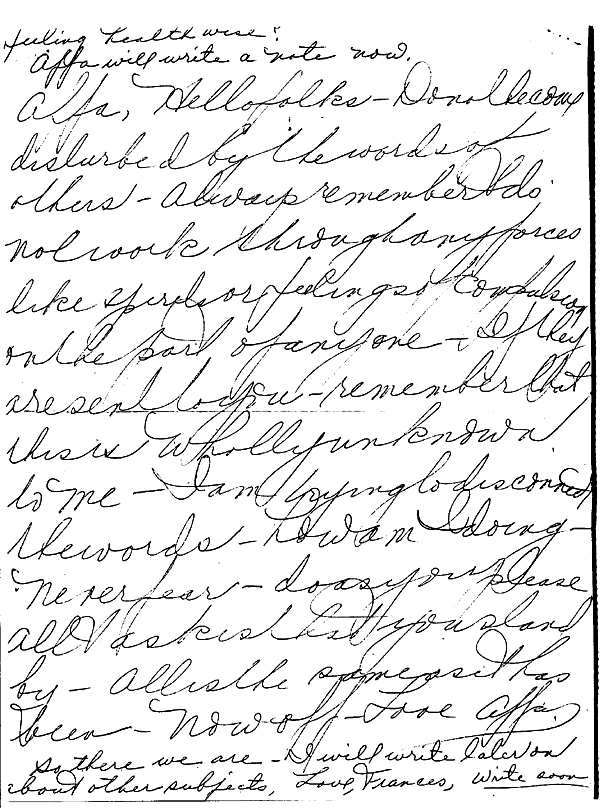 feeling health wise?
Affa will write a note now.
Affa, Hello folks - Do not become
disturbed by the words of
others - Always remember I do
not work through any forces
like spirits or feelings of compulsion
on the part of anyone - If they
are sent to you - remember that
this is wholly unknown
to me - I am trying to disconnect
the words - how am I doing -
Never fear - do as you please
All I ask is that you stand
by - All is the same as it has
been - Now off - Love Affa.
So there we are - I will write later on
about other subjects, Love, Frances, write soon